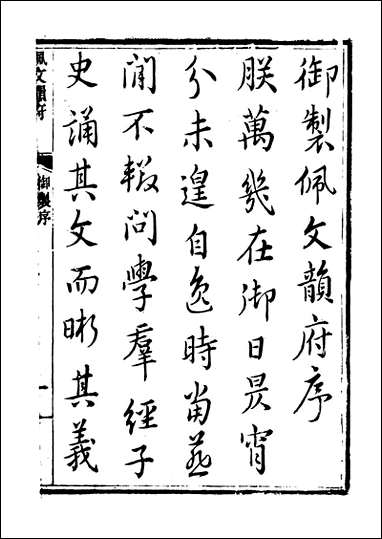 御製佩文韻府序
朕萬幾在御日昃宵
分未遑自逸時當燕
閒不輟問學羣經子
史誦其文而晰其義
佩文韻府
御製序
一